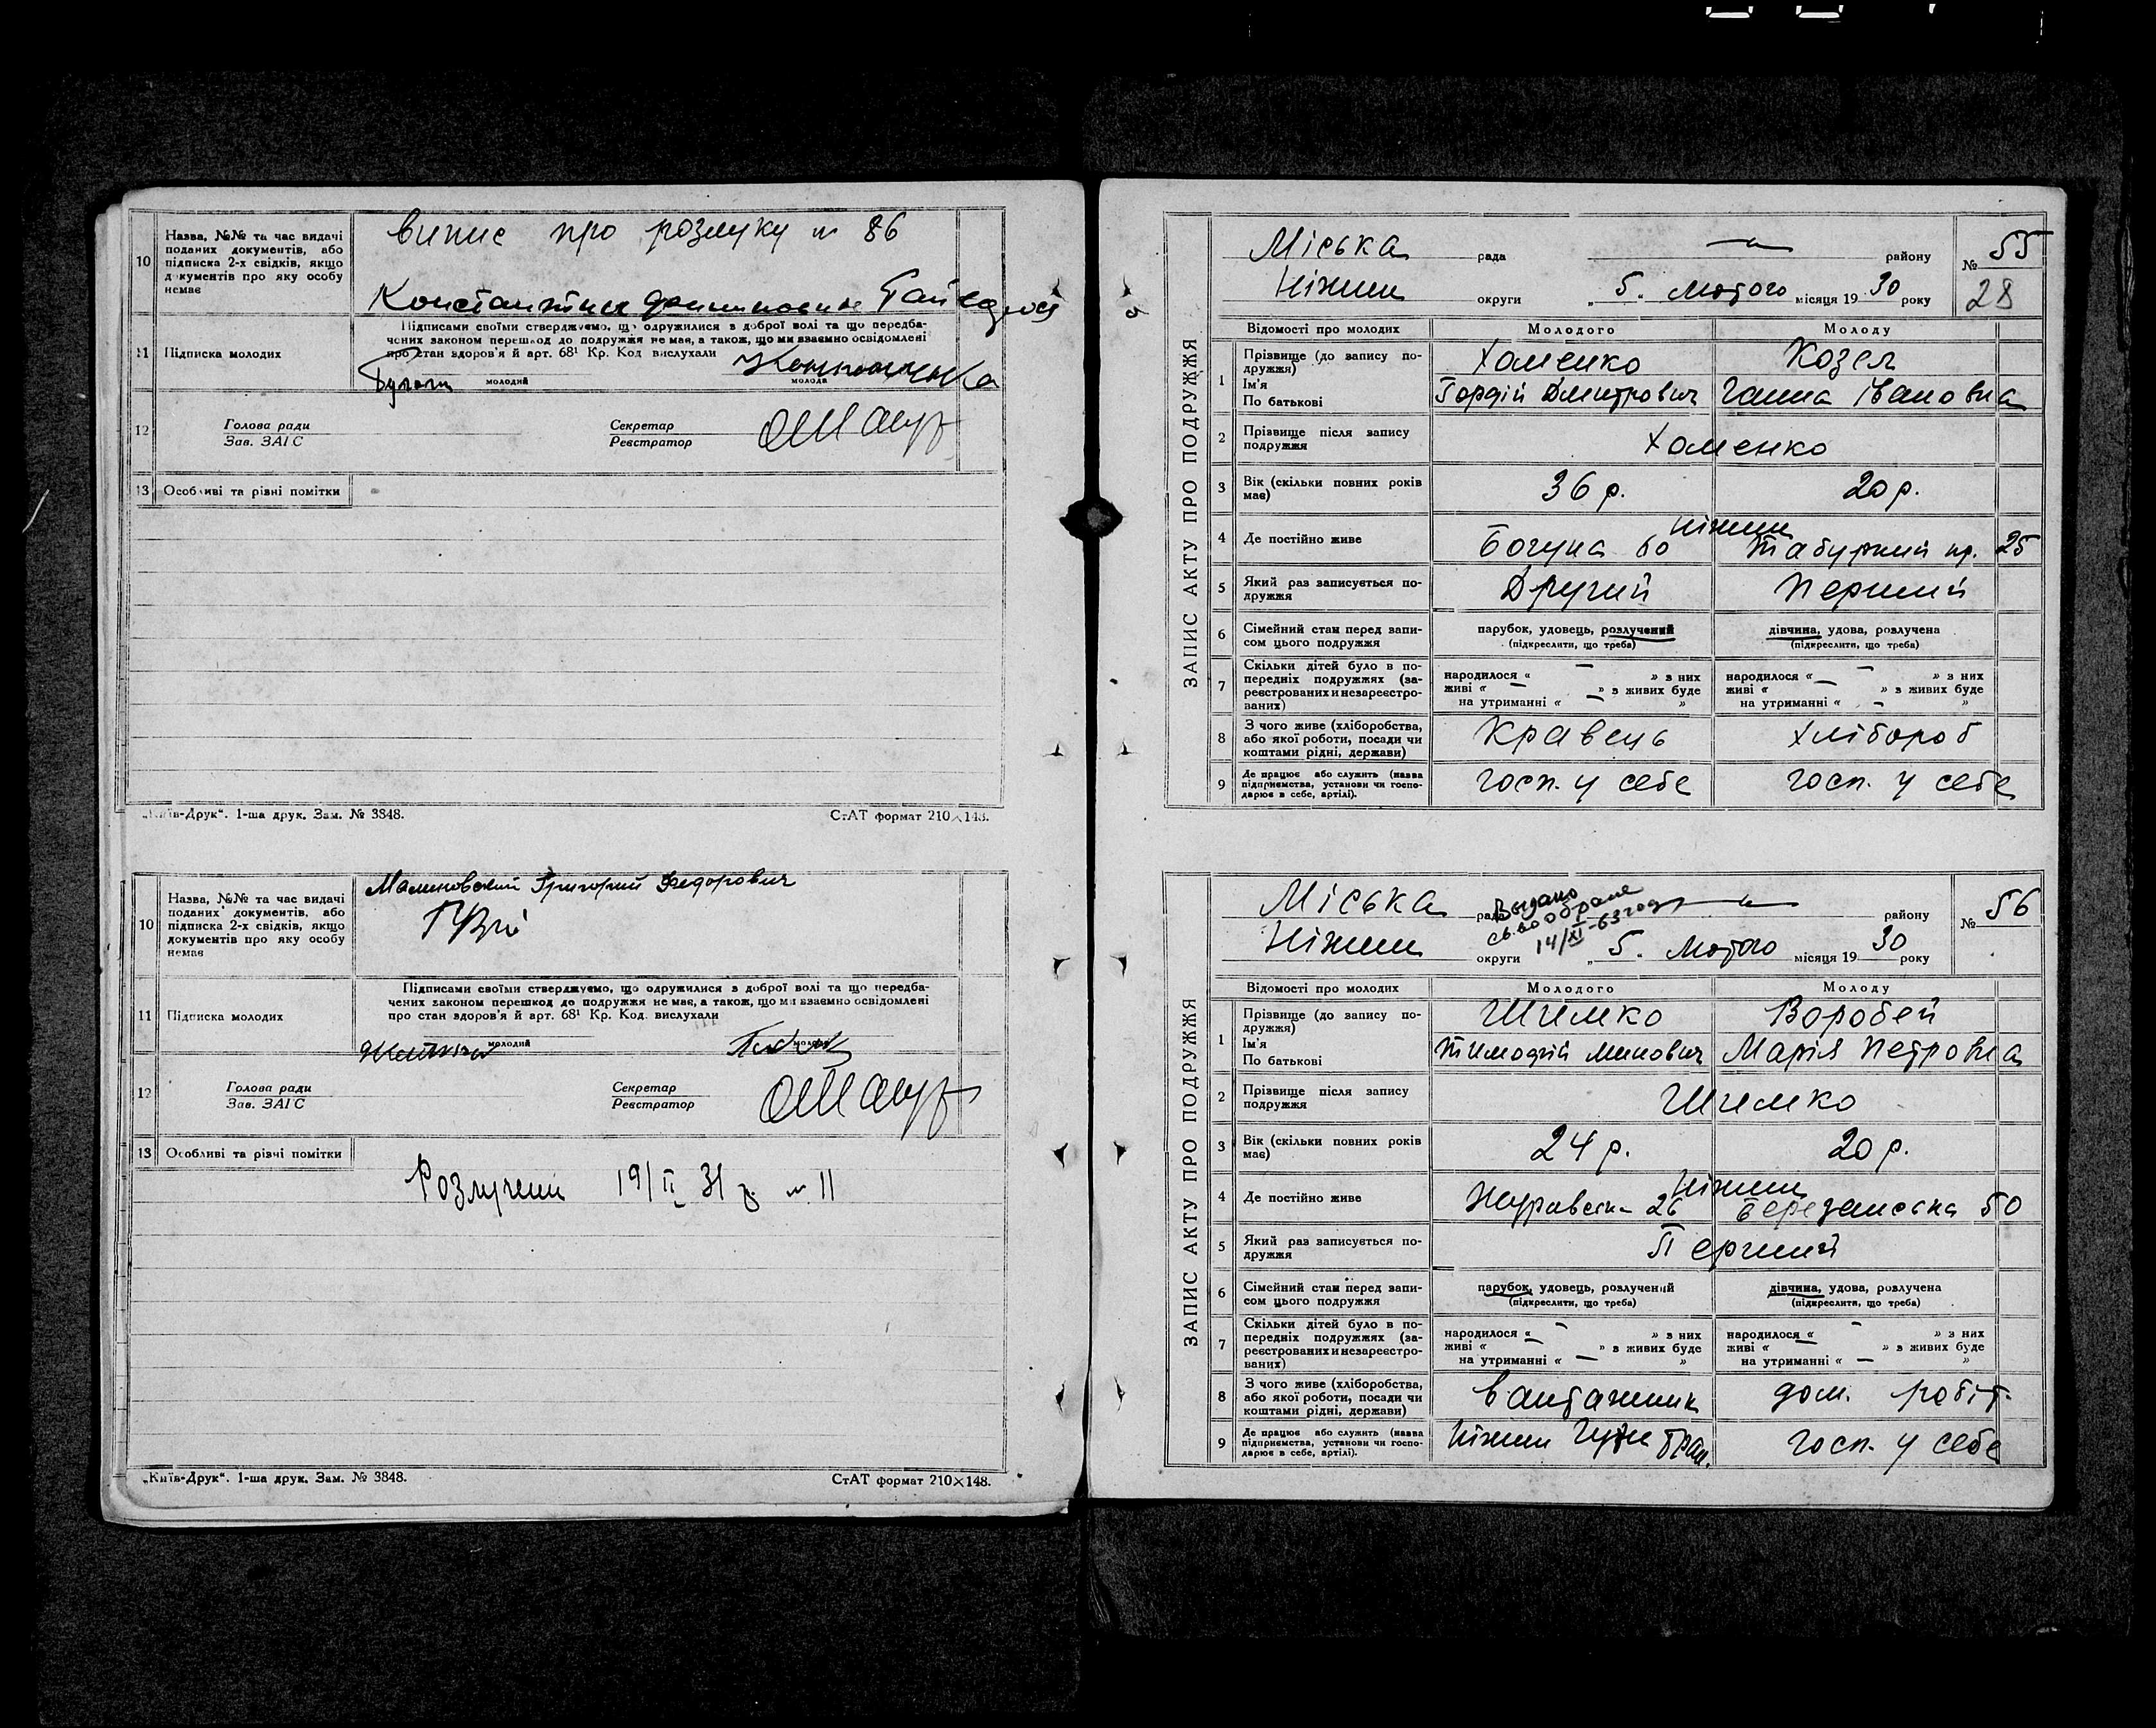 10
Назва, №№ та час видачі
поданих документів, або
підписка 2-х свідків, якщо
документів про яку особу
немає
випис про розлуку № 86
11
Підписка молодих
Підписами своїми стверджуємо, що одружилися з доброї волі та що передба-
чених законом перешкод до подружжя не має, а також, що ми взаємно освідомлені
про стан здоров'я й арт. 68¹ Кр. Код вислухали
молодий
молода
12
Голова ради
Зав. ЗАГС
Секретар
Реєстратор
13
Особливі та різні помітки
„Київ-Друк“. 1-ша друк. Зам. № 3848.
СтАТ формат 210×148.
10
Назва, №№ та час видачі
поданих документів, або
підписка 2-х свідків, якщо
документів про яку особу
немає
Малиновский Григорий Федорович
11
Підписка молодих
Підписами своїми стверджуємо, що одружилися з доброї волі та що передба-
чених законом перешкод до подружжя не має, а також, що ми взаємно освідомлені
про стан здоров'я й арт. 68¹ Кр. Код. вислухали
молодий
молода
12
Голова ради
Зав. ЗАГС
Секретар
Реєстратор
13
Особливі та різні помітки
Розлучені 19/II 31 р. № 11
„Київ-Друк“. 1-ша друк. Зам. № 3848.
СтАТ формат 210×148.
ЗАПИС АКТУ ПРО ПОДРУЖЖЯ
Міська рада — району № 55
Ніжин округи „ 5. Лютого місяця 1930 року 28
Відомості про молодих Молодого Молоду
1
Прізвище (до запису по-
дружжя)
Ім'я
По батькові
Хоменко Козел
Гордій Дмитрович Ганна Івановна
2
Прізвище після запису
подружжя
Хоменко
3
Вік (скільки повних років
має)
36 р. 20 р.
4
Де постійно живе
Ніжин
Богуна 60 пр. 25
5
Який раз записується по-
дружжя
Другий Перший
6
Сімейний стан перед запи-
сом цього подружжя
парубок, удовець, розлучений
(підкреслити, що треба)
дівчина, удова, розлучена
(підкреслити, що треба)
7
Скільки дітей було в по-
передніх подружжях (за-
реєстрованих и незареєстро-
ваних)
народилося « — » з них
живі « — » з живих буде
на утриманні « — »
народилося « — » з них
живі « — » з живих буде
на утриманні « - »
8
З чого живе (хліборобства,
або якої роботи, посади чи
коштами рідні, держави)
Кравець Хлібороб
9
Де працює або служить (назва
підприємства, установи чи госпо-
дарює в себе, артілі).
госп. у себе госп. у себе
ЗАПИС АКТУ ПРО ПОДРУЖЖЯ
Міська рада — району № 56
Выдано
св. во о браке
14/XI-63 год
Ніжин округи „ 5. Лютого місяця 1930 року
Відомості про молодих Молодого Молоду
1
Прізвище (до запису по-
дружжя)
Ім'я
По батькові
Шимко Воробей
Тимофій Минович Марія Петровна
2
Прізвище після запису
подружжя
Шимко
3
Вік (скільки повних років
має)
24 р. 20 р.
4
Де постійно живе
Ніжин
26 Березанська 50
5
Який раз записується по-
дружжя
Перший
6
Сімейний стан перед запи-
сом цього подружжя
парубок, удовець, розлучений
(підкреслити, що треба)
дівчина, удова, розлучена
(підкреслити, що треба)
7
Скільки дітей було в по-
передніх подружжях (за-
реєстрованих и незареєстро-
ваних)
народилося « — » з них
живі « — » з живих буде
на утриманні « — »
народилося « — » з них
живі « — » з живих буде
на утриманні « — »
8
З чого живе (хліборобства,
або якої роботи, посади чи
коштами рідні, держави)
вантажник дом. робіт.
9
Де працює або служить (назва
підприємства, установи чи госпо-
дарює в себе, артілі).
Ніжин госп. у себе